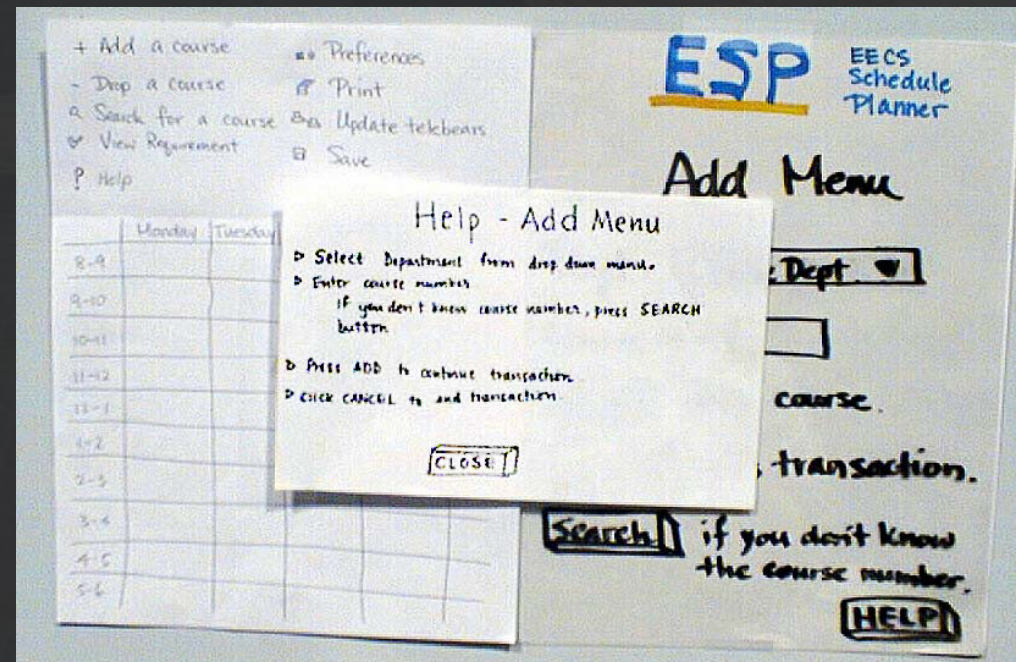 + Add a course
- Drop a course
Search for a course
View Requirement
? Help
Preferences
Print
Update telebears
Save
Monday Tuesday
8-9
9-10
10-11
11-12
12-1
1-2
2-3
3-4
4-5
5-6
Help - Add Menu
Select Department from drop down menu.
Enter course number
if you don't know course number, press SEARCH
button
Press ADD to continue transaction
Click CANCEL to end transaction.
CLOSE
ESP
EECS
Schedule
Planner
Add Menu
Dept.
course.
transaction.
Search if you don't know
the course number.
HELP